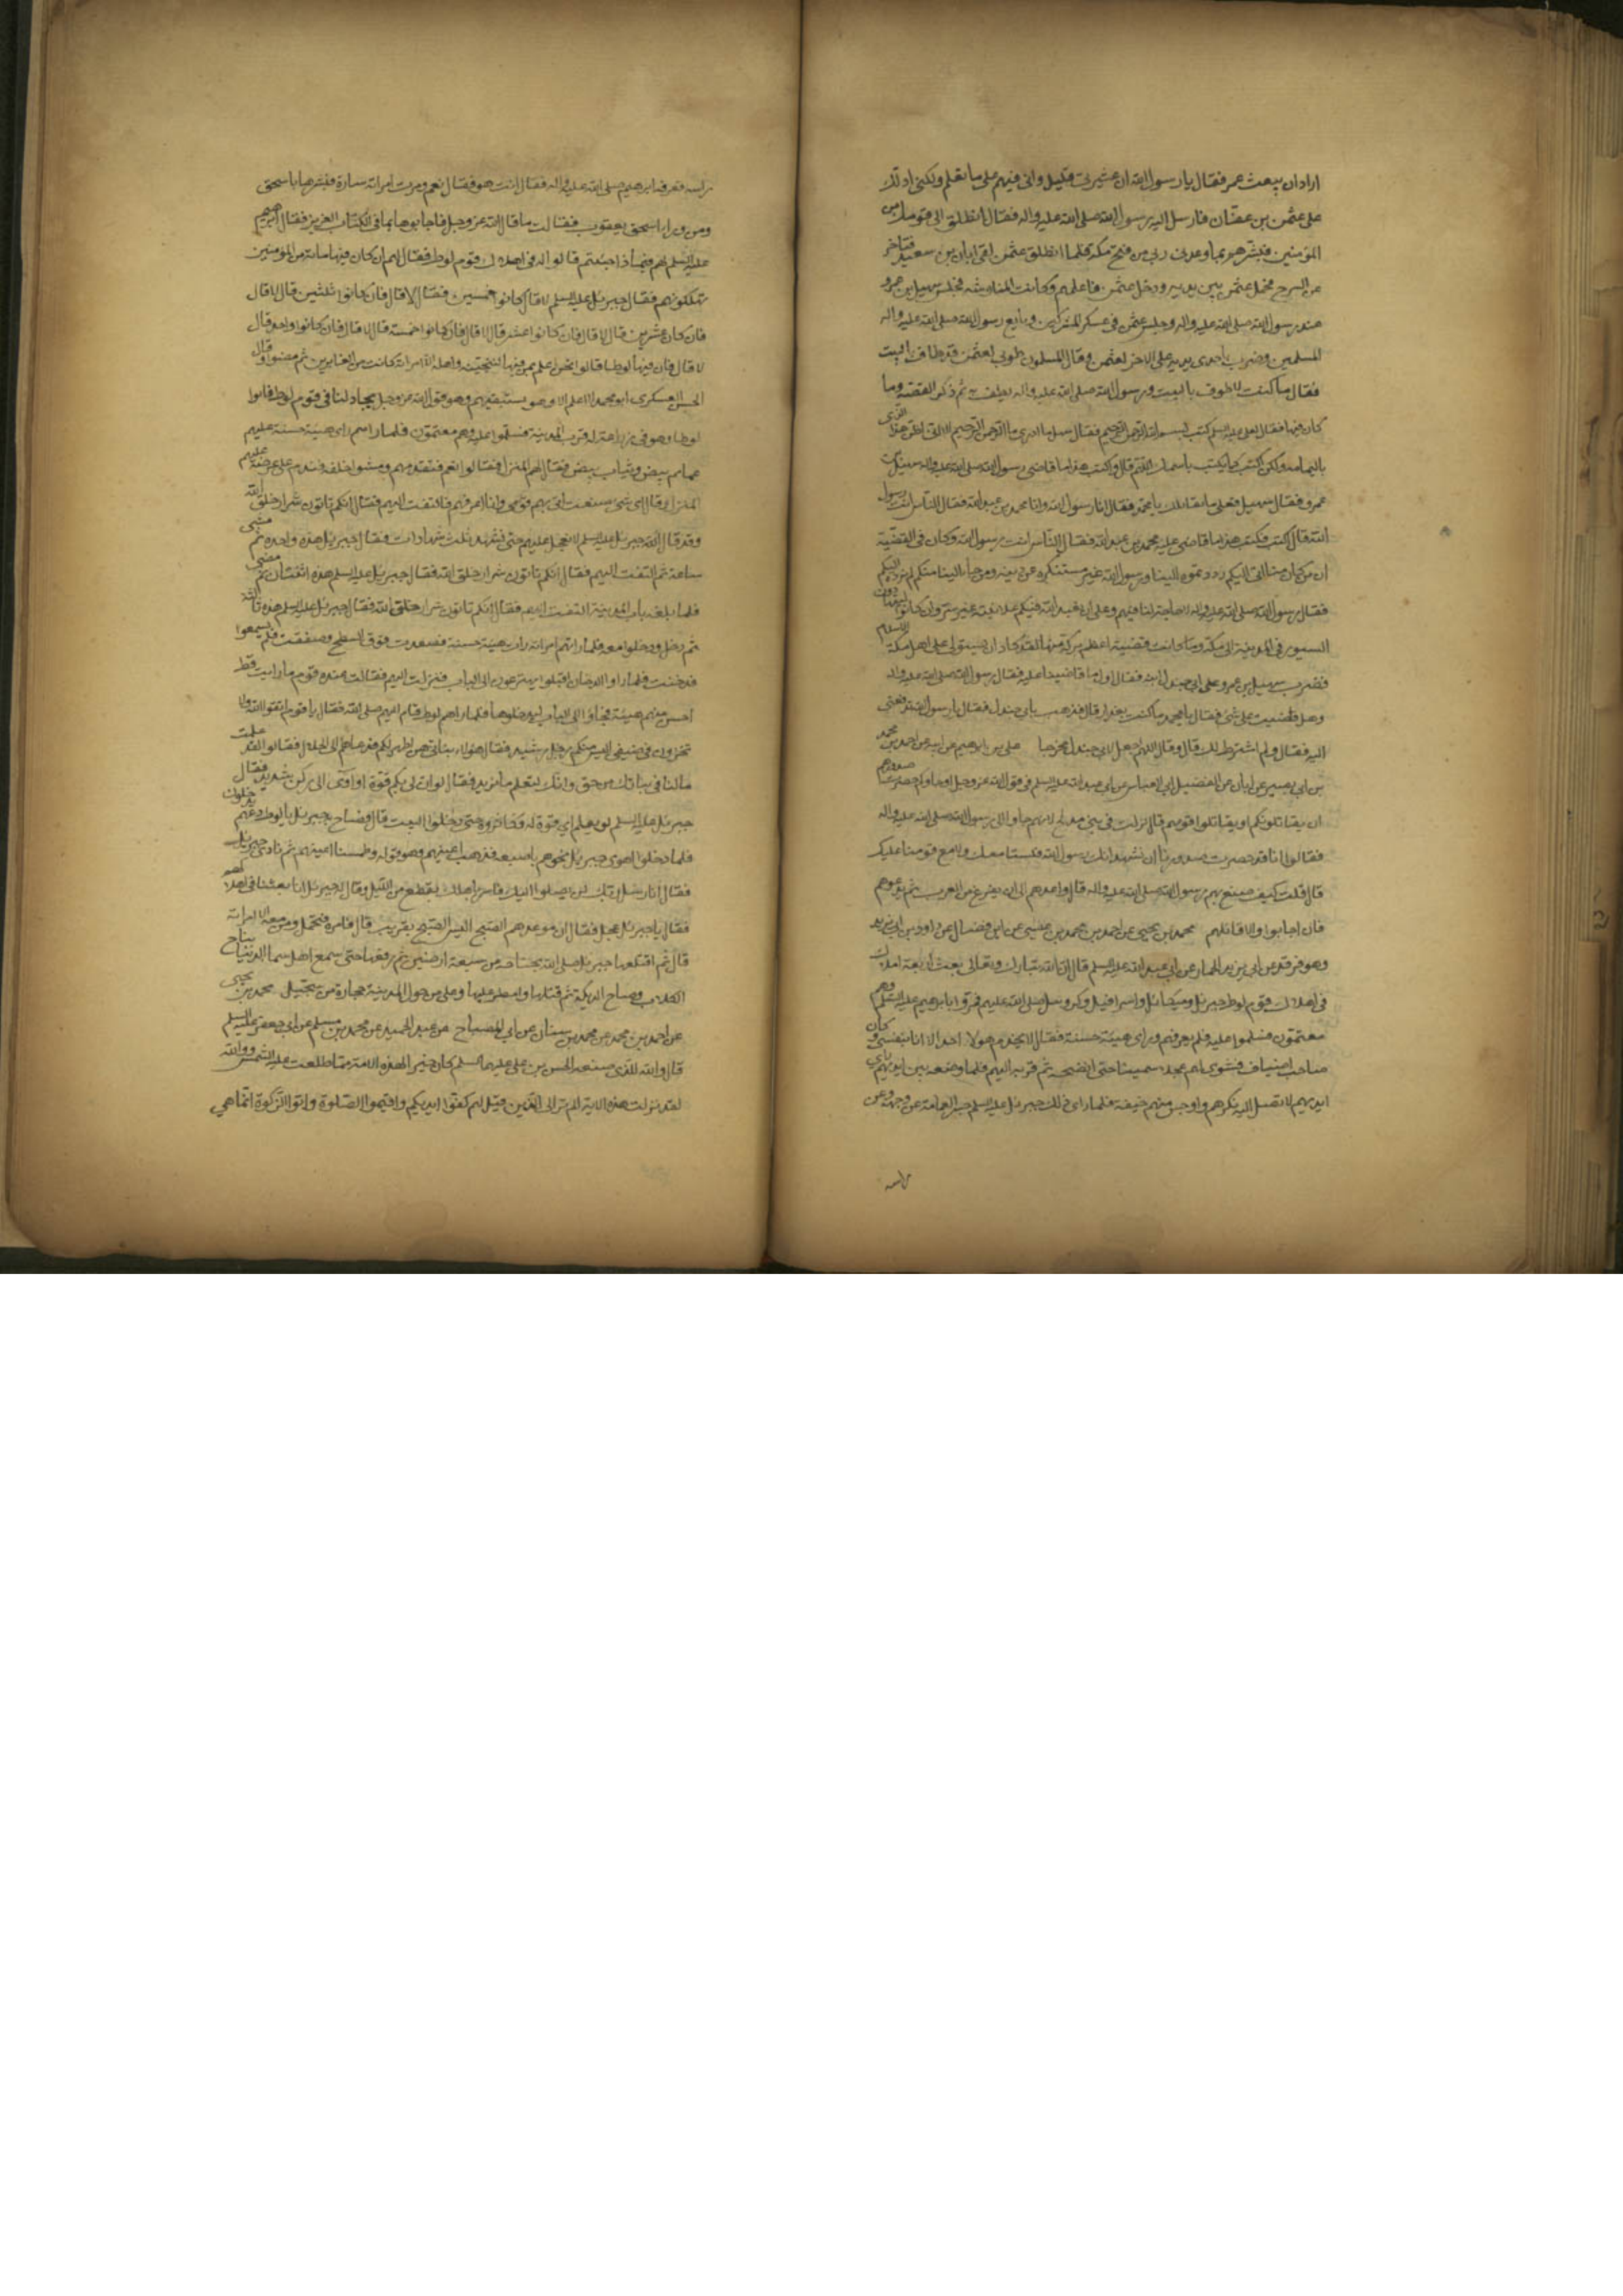 اراد ان يبعث عمر فقال يا رسول الله ان عشيرتي قليل واني فيهم على ما تعلم ولكني ادلك
على عثمن بن عفان فارسل اليه رسول الله صلى الله عليه واله فقال انطلق الى قومك من
المؤمنين فبشرهم بما وعدني ربي من فتح مكة فلما انطلق عثمن لقي ابان بن سعيد فتاخر
عن السرح فحمل عثمن بين يديه ودخل عثمن فاعلمهم وكانت المناوشة فجلس سهيل بن عمرو
عند رسول الله صلى الله عليه واله وجلس عثمن في عسكر المشركين وبايع رسول الله صلى الله عليه واله
المسلمين وضرب باحدى يديه على الاخرى لعثمن وقال المسلمون طوبى لعثمن قد طاف بالبيت
فقال ما كنت لاطوف بالبيت ورسول الله صلى الله عليه واله لم يطف به ثم ذكر القصة وما
كان فيها فقال لعلي عليه السلم اكتب بسم الله الرحمن الرحيم فقال سهيل ما ادري ما الرحمن الرحيم الا اني اظن هذا الذي
باليمامة ولكن اكتب كما نكتب باسمك اللهم قال واكتب هذا ما قاضى رسول الله صلى الله عليه واله سهيل بن
عمرو فقال سهيل فعلى ما نقاتلك يا محمد فقال انا رسول الله وانا محمد بن عبد الله فقال الناس انت رسول
الله قال اكتب فكتب هذا ما قاضى عليه محمد بن عبد الله فقال الناس انت رسول الله وكان في القضية
ان من كان منا اتى اليكم رددتموه الينا ورسول الله غير مستكره عن دينه ومن جاء الينا منكم لم نرده اليكم
فقال رسول الله صلى الله عليه واله لا حاجة لنا فيهم وعلى ان نعبد الله فيكم علانية غير سر وان كانوا ليتهادون
السيور في المدينة الى مكة وما كانت قضية اعظم بركة منها لقد كاد ان يستولي على اهل مكة الاسلام
فضرب سهيل بن عمرو على ابي جندل ابنه فقال اول ما قاضينا عليه فقال رسول الله صلى الله عليه واله
وهل قاضيت على شيء فقال يا محمد ما كنت بغدار قال فذهب بابي جندل فقال يا رسول الله تدفعني
اليه فقال ولم اشترط لك قال وقال اللهم اجعل لابي جندل مخرجا علي بن ابرهيم عن ابيه عن احمد بن محمد
بن ابي بصير عن ابان عن الفضيل ابي العباس عن ابي عبد الله عليه السلم في قول الله عز وجل او جاؤكم حصرت صدورهم
ان يقاتلونكم او يقاتلوا قومهم قال نزلت في بني مدلج لانهم جاؤا الى رسول الله صلى الله عليه واله
فقالوا انا قد حصرت صدورنا ان نشهد انك رسول الله فلسنا معك ولا مع قومنا عليك
قال قلت كيف صنع بهم رسول الله صلى الله عليه واله قال واعدهم الى ان يفرغ من العرب ثم يدعوهم
فان اجابوا والا قاتلهم محمد بن يحيى عن احمد بن محمد بن عيسى عن ابن فضال عن داود بن ابي يزيد
وهو فرقد عن ابي يزيد الحمار عن ابي عبد الله عليه السلم قال ان الله تبارك وتعالى بعث اربعة املاك
في اهلاك قوم لوط جبرئيل وميكائيل واسرافيل وكروبيل صلى الله عليهم فمروا بابرهيم عليه السلم وهم
معتمون فسلموا عليه فلم يعرفهم وراى هيئة حسنة فقال لا يخدم هولاء احد الا انا بنفسي وكان
صاحب اضياف فشوى لهم عجلا سمينا حتى انضجه ثم قربه اليهم فلما وضعه بين ايديهم راى
ايديهم لا تصل اليه نكرهم واوجس منهم خيفة فلما راى ذلك جبرئيل عليه السلم حسر العمامة عن وجهه وعن
راسه
راسه فعرفه ابرهيم صلى الله عليه واله فقال انت هو فقال نعم ومرت امراته سارة فبشرها باسحق
ومن وراء اسحق يعقوب فقالت ما قال الله عز وجل فاجابوها بما في الكتاب العزيز فقال ابرهيم
عليه السلم لهم فيما ذا جئتم قالوا له في اهلاك قوم لوط فقال لهم ان كان فيها مائة من المؤمنين
تهلكونهم فقال جبرئيل عليه السلم لا قال فان كانوا خمسين فقال لا قال فان كانوا ثلثين قال لا قال
فان كان عشرين قال لا قال فان كانوا عشرة قال لا قال فان كانوا خمسة قال لا قال فان كانوا واحد قال
لا قال فان فيها لوطا قالوا نحن اعلم بمن فيها لننجينه واهله الا امراته كانت من الغابرين ثم مضوا وقال
الحسن العسكري ابو محمد لا اعلم الا وهو يستبقيهم وهو قول الله عز وجل يجادلنا في قوم لوط فاتوا
لوطا وهو في زراعة له قرب المدينة فسلموا عليه وهم معتمون فلما راهم راى هيئة حسنة عليهم
عمائم بيض وثياب بيض فقال لهم المنزل فقالوا نعم فتقدمهم ومشوا خلفه فندم على عرضه عليهم
المنزل وقال اي شيء صنعت اتي بهم قومي وانا اعرفهم فالتفت اليهم فقال انكم تاتون شرار خلق الله
وقد قال الله جبرئيل عليه السلم لا نعجل عليهم حتى يشهد ثلث شهادات فقال جبرئيل هذه واحدة ثم مشى
ساعة ثم التفت اليهم فقال انكم تاتون شرار خلق الله فقال جبرئيل عليه السلم هذه اثنتان ثم مضى
فلما بلغ باب المدينة التفت اليهم فقال انكم تاتون شرار خلق الله فقال جبرئيل عليه السلم هذه ثالثة
ثم دخل ودخلوا معه فلما راتهم امراته رات هيئة حسنة فصعدت فوق السطح وصفقت فلم يسمعوا
فدخنت فلما راوا الدخان اقبلوا يهرعون الى الباب فنزلت اليهم فقالت عنده قوم ما رايت قط
احسن منهم هيئة فجاؤا الى الباب ليدخلوها فلما راهم لوط قام اليهم صلى الله فقال يا قوم اتقوا الله ولا
تخزون في ضيفي اليس منكم رجل رشيد فقال هولاء بناتي هن اطهر لكم فدعاهم الى الحلال فقالوا لقد علمت
ما لنا في بناتك من حق وانك لتعلم ما نريد فقال لو ان لي بكم قوة او آوي الى ركن شديد فقال
جبرئيل عليه السلم لو يعلم اي قوة له فكاثروه حتى دخلوا البيت قال فصاح به جبرئيل يا لوط دعهم يدخلون
فلما دخلوا اهوى جبرئيل نحوهم باصبعه فذهب اعينهم وهو قوله وطمسنا اعينهم ثم نادى جبرئيل
فقال انا رسل ربك لن يصلوا اليك فاسر باهلك بقطع من الليل وقال له جبرئيل انا بعثنا في اهلاكهم
فقال يا جبرئيل عجل فقال ان موعدهم الصبح اليس الصبح بقريب قال فامره فتحمل ومن معه الا امراته
قال ثم اقتلعها جبرئيل صلى الله بجناحه من سبعة ارضين ثم رفعها حتى سمع اهل سماء الدنيا نباح
الكلاب وصياح الديكة ثم قلبها وامطر عليها وعلى من حول المدينة حجارة من سجيل محمد بن يحيى
عن احمد بن محمد عن محمد بن سنان عن ابي الصباح عن عبد الحميد عن محمد بن مسلم عن ابي جعفر عليه السلم
قال والله للذي صنعه الحسن بن علي عليهما السلم كان خير لهذه الامة مما طلعت عليه الشمس ووالله
لقد نزلت هذه الاية الم تر الى الذين قيل لهم كفوا ايديكم واقيموا الصلوة واتوا الزكوة انما هي